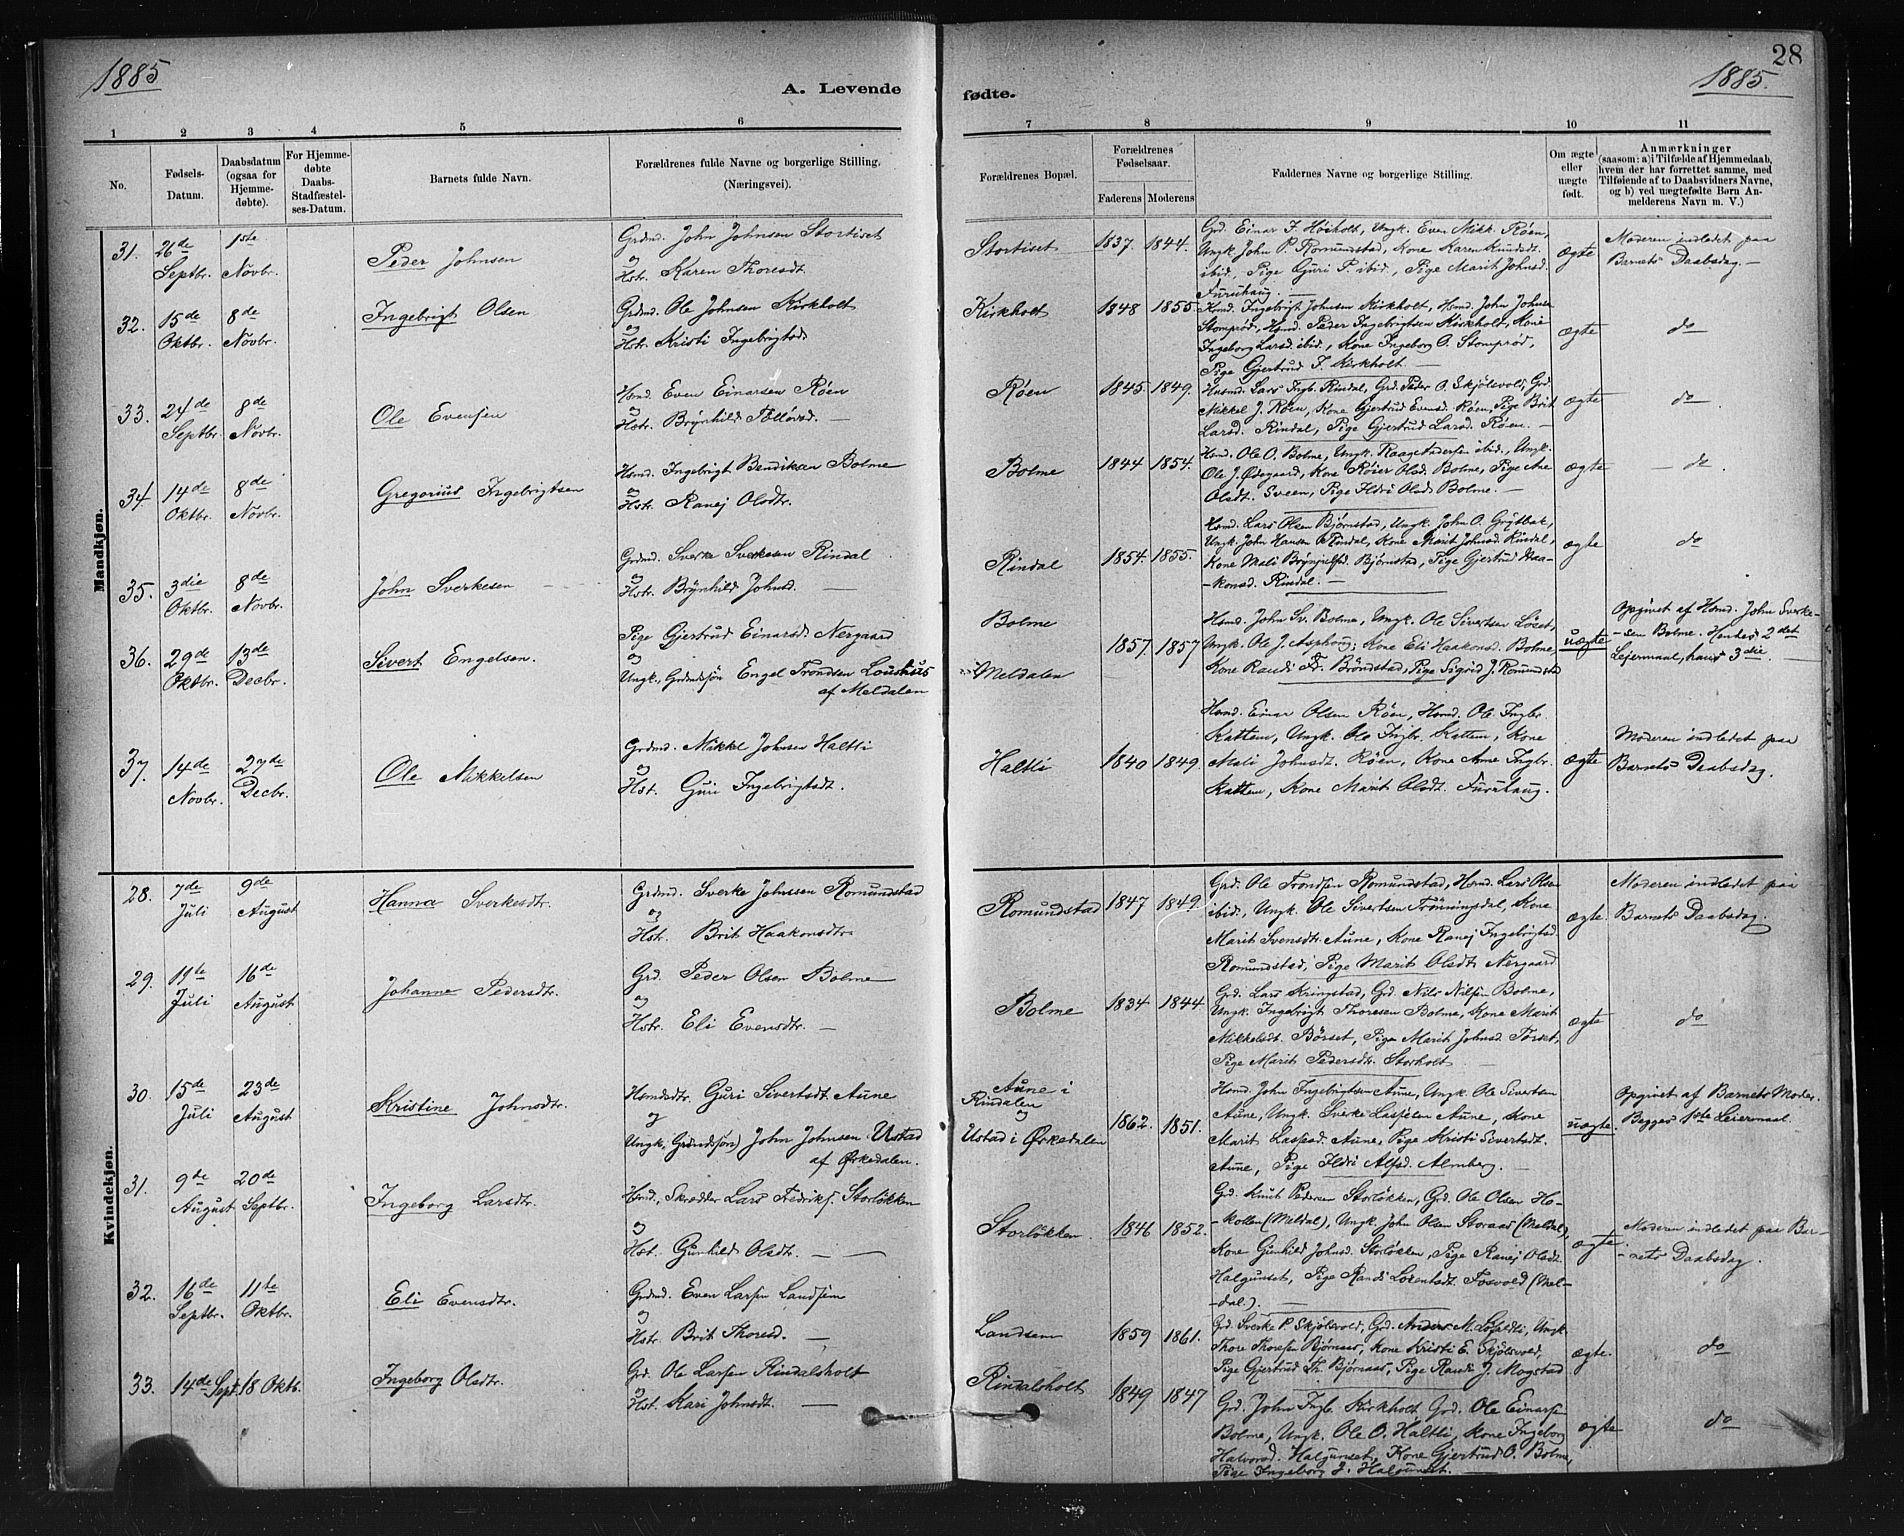 1885
28
1885.
A. Levende
fødte.
1 2 3 4 5 6
7 8 9 10 11
No.
Fødsels-
Datum.
Daabsdatum
(ogsaa for
Hjemme-
døbte).
For Hjemme-
døbte
Daabs-
Stadfæstel-
ses-Datum.
Barnets fulde Navn.
Forældrenes fulde Navne og borgerlige Stilling.
(Næringsvei).
Forældrenes Bopæl.
Forældrenes
Fødselsaar.
Faderens Moderens
Faddernes Navne og borgerlige Stilling.
Om ægte
eller
uægte
født.
Anmærkninger
(saasom: a) i Tilfælde af Hjemmedaab,
hvem der har forrettet samme, med
Tilføiende af to Daabsvidners Navne,
og b) ved uægtefødte Børn An-
melderens Navn m. V.)
Mandkjøn.
31. 26de Septbr. 1ste Novbr.
Peder Johnsen
Grdmd. John Johnsen Stortiset
og
Hstr. Karen Thoresdt.
Stortiset 1837. 1844.
Grd. Einar F. Høiholt, Ungk. Even Mikk. Røen,
Ungk. John P. Romundstad, Kone Karen Knudsdt.
ibid., Pige Guri P. ibid., Pige Marit Johnsd.
Furuhaug. —
ægte
Moderen indledet paa
Barnets Daabsdag. —
32. 15de Oktbr. 8de Novbr.
Ingebrigt Olsen
Grdmd. Ole Johnsen Kirkholt
og
Hstr. Kristi Ingebrigtsdt.
Kirkholt 1848 1855.
Hmd. Ingebrigt Johnsen Kirkholt, Hsmd. John Johnsen
Stomprød, Hsmd. Peder Ingebrigtsen Kirkholt, Kone
Ingeborg Larsd. ibid., Kone Ingeborg O. Stomprød,
Pige Gjertrud F. Kirkholt. —
ægte
do
33. 24de Septbr. 8de Novbr.
Ole Evensen
Hsmd. Even Einarsen Røen
og
Hstr. Brynhild Tollövsd. —
Røen 1845. 1849.
Husmd. Lars Ingb. Rindal, Grd. Peder O. Skjölsvold, Grd.
Mikkel J. Røen, Kone Gjertrud Evensd. Røen, Pige Brit
Larsd. Rindal, Pige Gjertrud Larsd. Røen. —
ægte
do
34. 14de Oktbr. 8de Novbr.
Gregorius Ingebrigtsen
Hsmd. Ingebrigt Bendiksen Bolme
og
Hstr. Ranej Olsdtr.
Bolme 1844 1854.
Hsmd. Ole O. Bolme, Ungk. Raage Andersen ibid., Ungk.
Ole J. Ødegaard, Kone Røier Olsd. Bolme, Pige Ane
Olsdt. Sveen, Pige Ildri Olsd. Bolme. —
ægte
— do
35. 3die Oktbr. 8de Novbr.
John Sverkesen
Grdmd. Sverke Sverkesen Rindal
og
Hstr. Brynhild Johnsd. —
Rindal 1854. 1855.
Hsmd. Lars Olsen Bjørnstad, Ungk. John O. Grytbak,
Ungk. John Hansen Rindal, Kone Marit Johnsd. Rindal,
Kone Mali Brynjulfsd. Bjørnstad, Pige Gjertrud Haa-
-konsd. Rindal. —
ægte
do
36. 29de Oktbr. 13de Decbr.
Sivert Engelsen.
Pige Gjertrud Einarsd. Nergaard
og
Ungk., Grdmdssøn Engel Trondsen Loushus
af Meldalen
Bolme
Meldalen
1857. 1857
Hsmd. John Sv. Bolme, Ungk. Ole Sivertsen Løset,
Ungk. Ole J. Asphoug, Kone Eli Haakonsd. Bolme,
Kone Randi Fr. Brøndstad, Pige Sigrid J. Romundstad
uægte
Opgivet af Hsmd. John Sverke-
-sen Bolme. Hendes 2det
Leiermaal, hans 3die.
37. 14de Novbr. 27de Decbr.
Ole Mikkelsen
Grdmd. Mikkel Johnsen Haltli
og
Hst. Guri Ingebrigtsdt.
Haltli 1840 1849.
Hsmd. Einar Olsen Røen, Hsmd. Ole Ingbr.
Kattem, Ungk. Ole Ingbr. Kattem, Kone
Mali Johnsdt. Røen, Kone Anne Ingbr.
Kattem, Kone Marit Olsdt. Furuhaug.
ægte
Moderen indledet paa
Barnets Daabsdag.
Kvindekjøn.
28. 7de Juli 9de August
Hanna Sverkesdtr.
Grdmd. Sverke Johnssen Romundstad
og
Hstr. Brit Haakonsdtr.
Romundstad 1847 1849.
Grd. Ole Trondsen Romundstad, Hsmd. Lars Olsen
ibid., Ungk. Ole Sivertsen Trönningsdal, Kone
Marit Svensdtr. Aune, Kone Ranej Ingebrigtsd.
Romundstad, Pige Marit Olsdt. Nergaard
ægte.
Moderen indledet paa
Barnets Daabsdag.
29. 11te Juli 16de August
Johanne Pedersdtr.
Grd. Peder Olsen Bolme
og
Hstr. Eli Evensdtr. —
Bolme 1834 1844
Grd. Lars Kringstad, Grd. Nils Nilsen Bolme,
Ungk. Ingebrigt Thoresen Bolme, Kone Marit
Mikkelsdt. Børset, Pige Marit Johnsd. Tørset,
Pige Marit Pedersdtr. Storholt —
ægte
do
30. 15de Juli 23de August
Kristine Johnsdtr.
Hsmdsdt Guri Sivertsdt. Aune
og
Ungk. Grdmdssøn) John Johnsen Ustad
af Ørkedalen.
Aune i
Rindalen
og
Ustad i Ørkedalen
1862. 1851.
Hsmd. John Ingebrigtsen Aune, Ungk. Ole Sivertsen
Aune, Ungk. Sverke Larssen Aune, Kone
Marit Larsd. Aune, Pige Kristi Sivertsdt.
Aune, Pige Ildri Alfsd. Almberg. —
uægte.
Opgivet af Barnets Moder.
Begges 1ste Leiermaal.
31. 9de August 20de Septbr.
Ingeborg Larsdtr.
Hsmd., Skrædder Lars Fredriks. Storløkken
og
Hst. Gunhild Olsdtr. —
Storløkken. 1846 1852.
Grd. Knut Pedersen Storløkken, Grd. Ole Olsen Ho-
-kollen (Meldal), Ungk. John Olsen Storaas (Meldal),
Kone Gunhild Johnsd. Storløkken, Pige Ranej Olsdt.
Halgunset, Pige Randi Lorentsdt. Fosvold (Mel-
-dal). —
ægte.
Moderen indledet paa Bar-
-nets Daabsdag.
32. 16de Septbr. 11te Oktbr.
Eli Evensdtr.
Grdmd. Even Larsen Landsem
og
Hstr. Brit Thoresd. —
Landsem 1859 1861.
Grd. Sverke P. Skjølsvold, Grd. Anders M. Løfaldli, Ungk.
Thore Thoresen Bjørnaas, Kone Kristi E. Skjølsvold,
Pige Gjertrud Th. Bjørnaas, Pige Randi J. Mogstad
ægte.
do
33. 14de Sept. 18 Oktb.
Ingeborg Olsdtr.
Grd. Ole Larsen Rindalsholt
og
Hst. Kari Johnsdt. —
Rindalsholt 1849 1847
Grd. John Ingb. Kirkholt, Grd. Ole Einarsen
Bolme, Ungk. Ole O. Haltli, Kone Ingeborg
Halvorsd. Halgunset, Kone Gjertrud O. Bolme,
Pige Ingeborg J. Halgunset. —
ægte
do